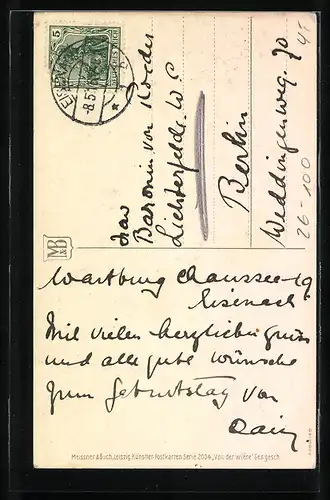 5
-8.5
Frau
Baronin von Roeder
Lichterfelde W
Berlin
Weddingenweg. 70
26-100
MB&
Wartburg Chaussee 19
Eisenach
Mit vielen herzlichen Gruss
und alle gute Wünsche
zum Geburtstag von
Meissner & Buch, Leipzig Künstler-Postkarten Serie 2034 „Von der Wiese" Ges. gesch.